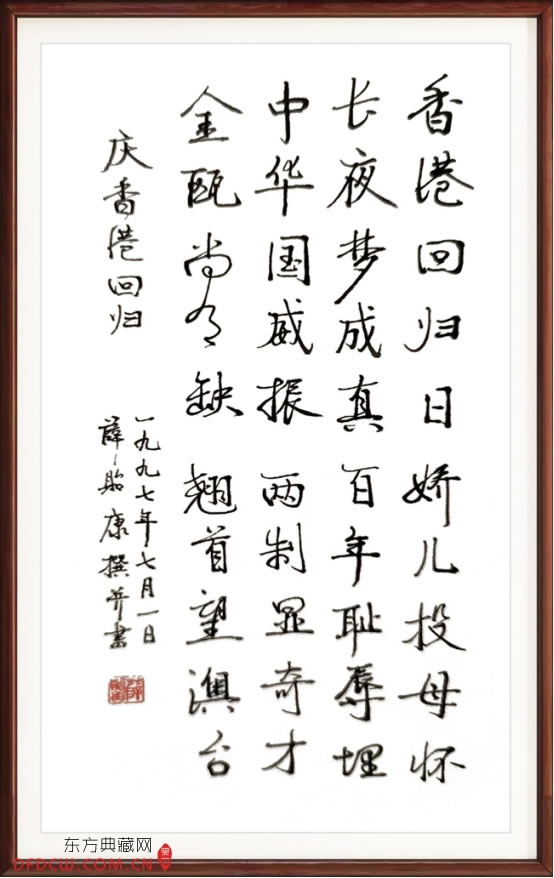 香港回归日娇儿投母怀
长夜梦成真百年耻辱埋
中华国威振两制显奇才
金瓯尚有缺翘首望澳台
庆香港回归
一九九七年七月一日
薛贻康撰并书
东方典藏网
DFDCW.COM.CN